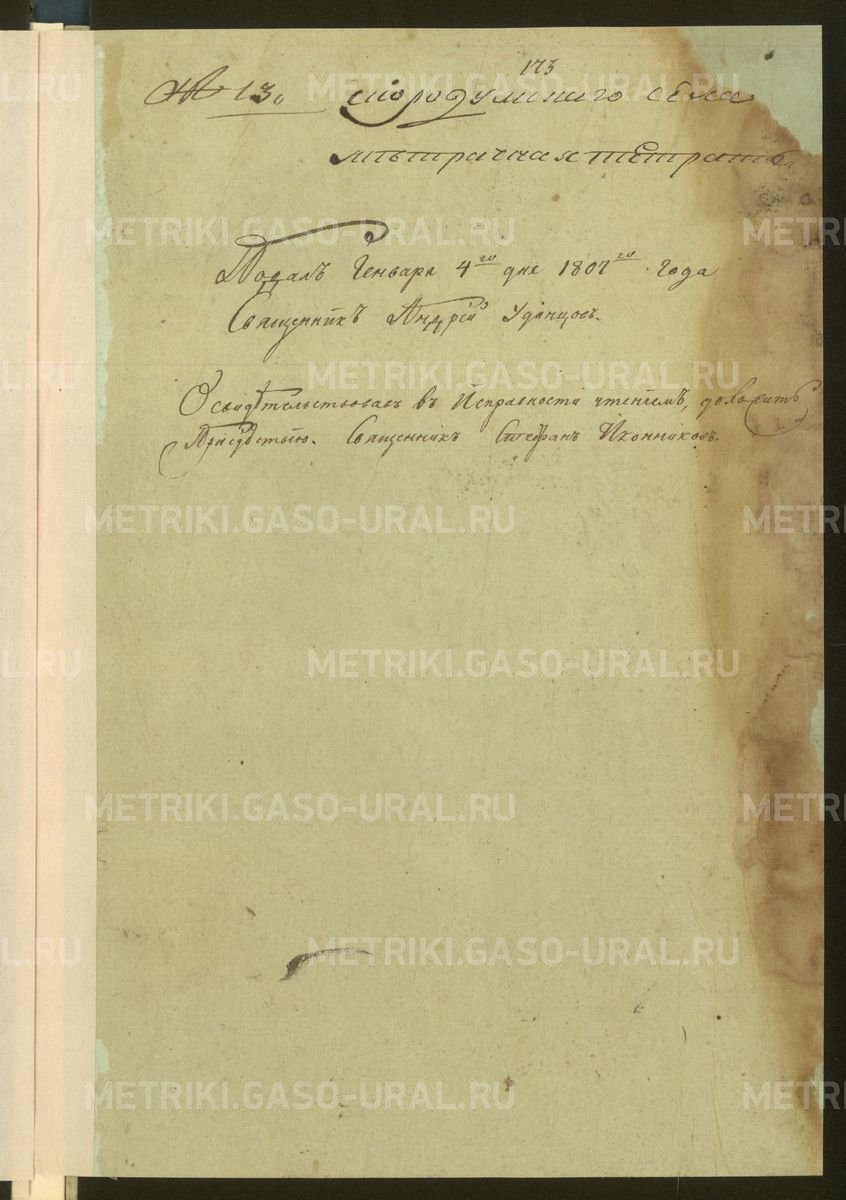 173
№ 13. скородумскаго села
метрачная тетрать
Подалъ Генваря 4го дня 1807го года
Священникъ Андрей Удинцовъ.
Освидѣтельствовавъ въ Исправности чтенiемъ, доложить
Присудствiю. Священникъ Стефанъ Иконниковъ.
METRIKI.GASO-URAL.RU